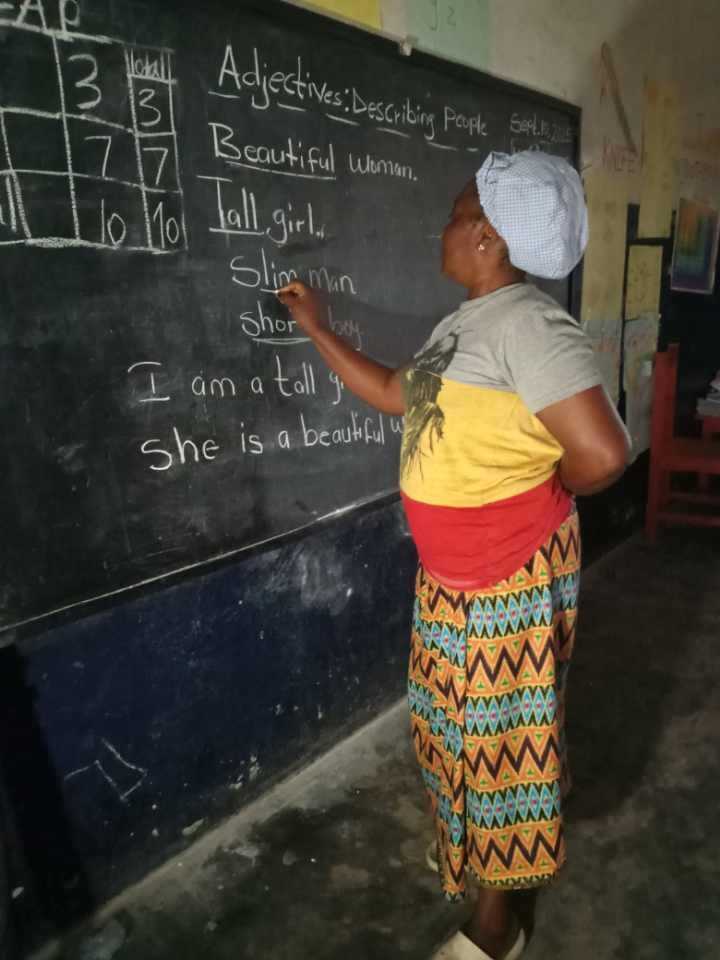 AP
3 Total
3
7 7
10 10
Adjectives: Describing People
Beautiful woman.
Tall girl.
Slim man
Short boy
I am a tall
She is a beautiful
KNIFE